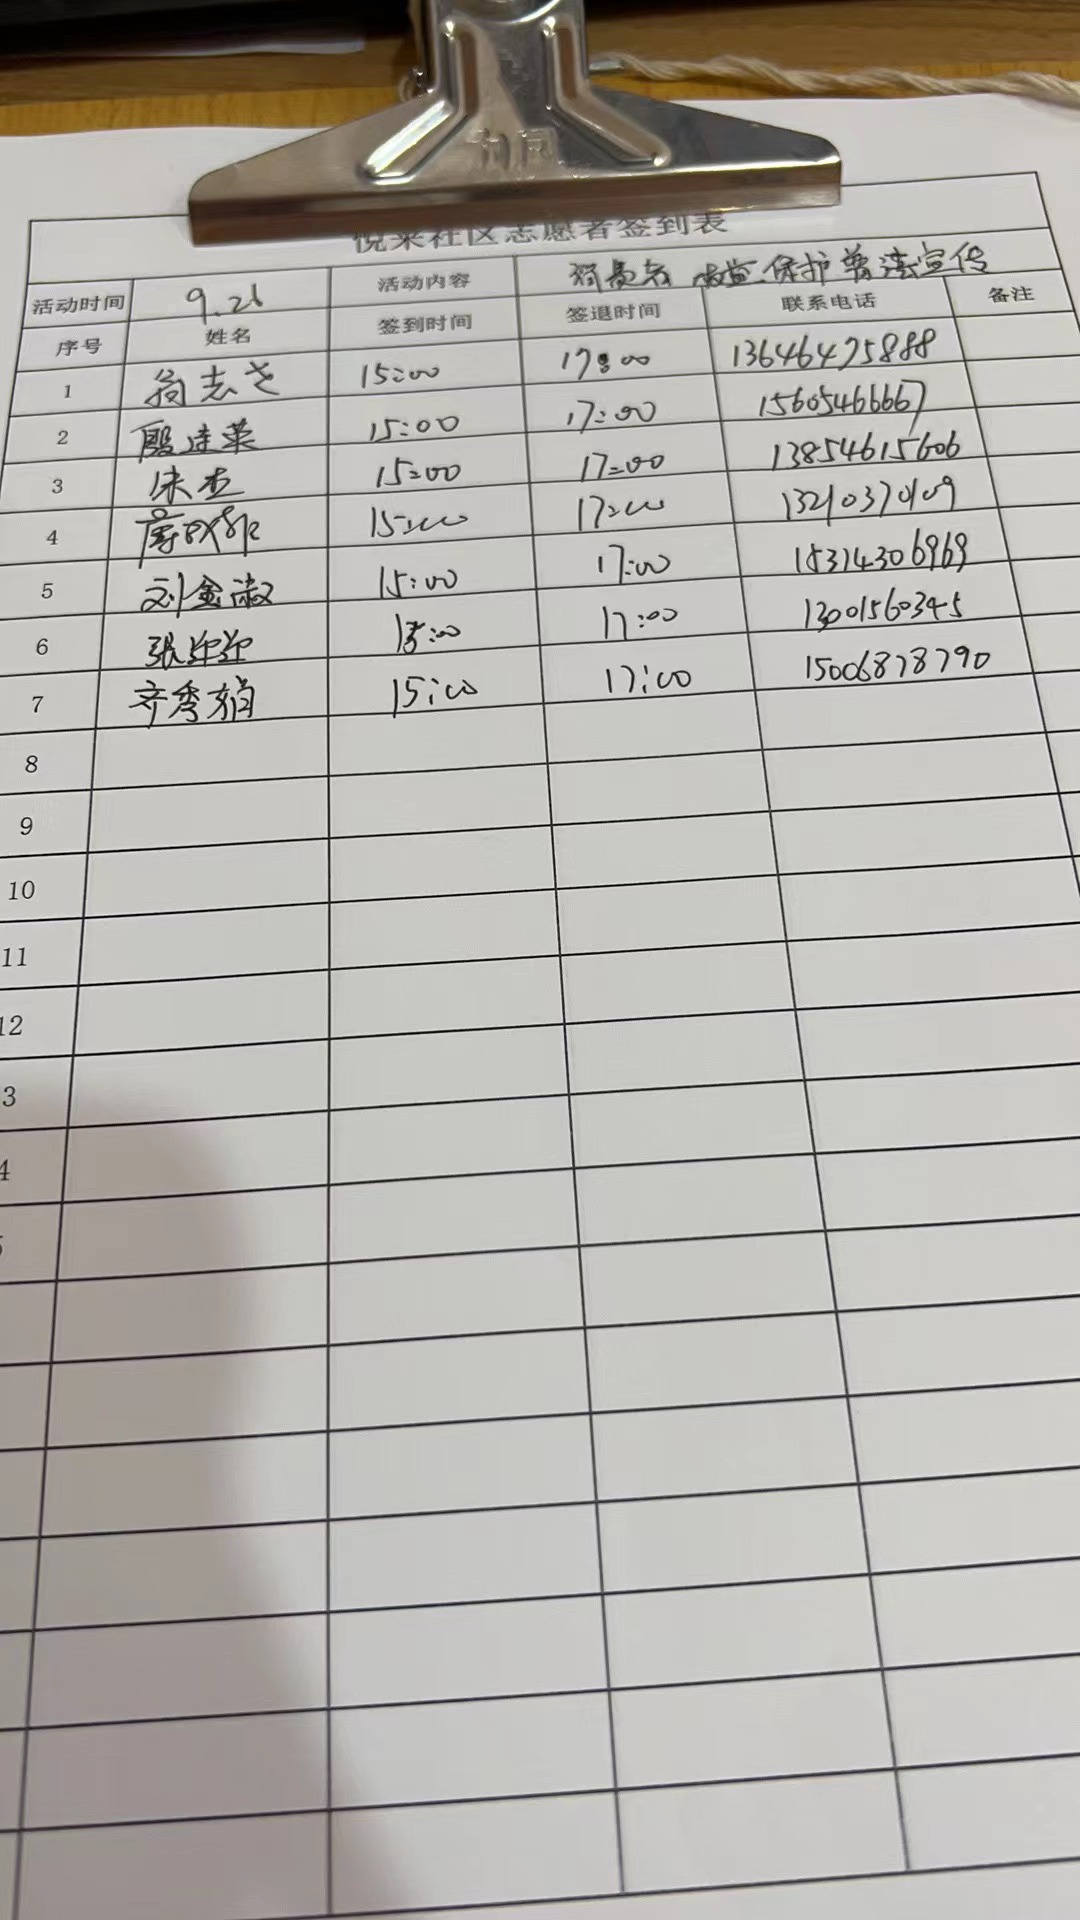 悦来社区志愿者签到表
活动时间 9.26 活动内容 消费者权益保护普法宣传
序号 姓名 签到时间 签退时间 联系电话 备注
1 15:00 17:00 13646475888
2 15:00 17:00 15605466667
3 朱杰 15:00 17:00 13854615606
4 15:00 17:00
5 刘金淑 15:00 17:00 15314306969
6 张迎迎 15:00 17:00 13001560345
7 齐秀娟 15:00 17:00 15006878790
8
9
10
11
12
3
4
5